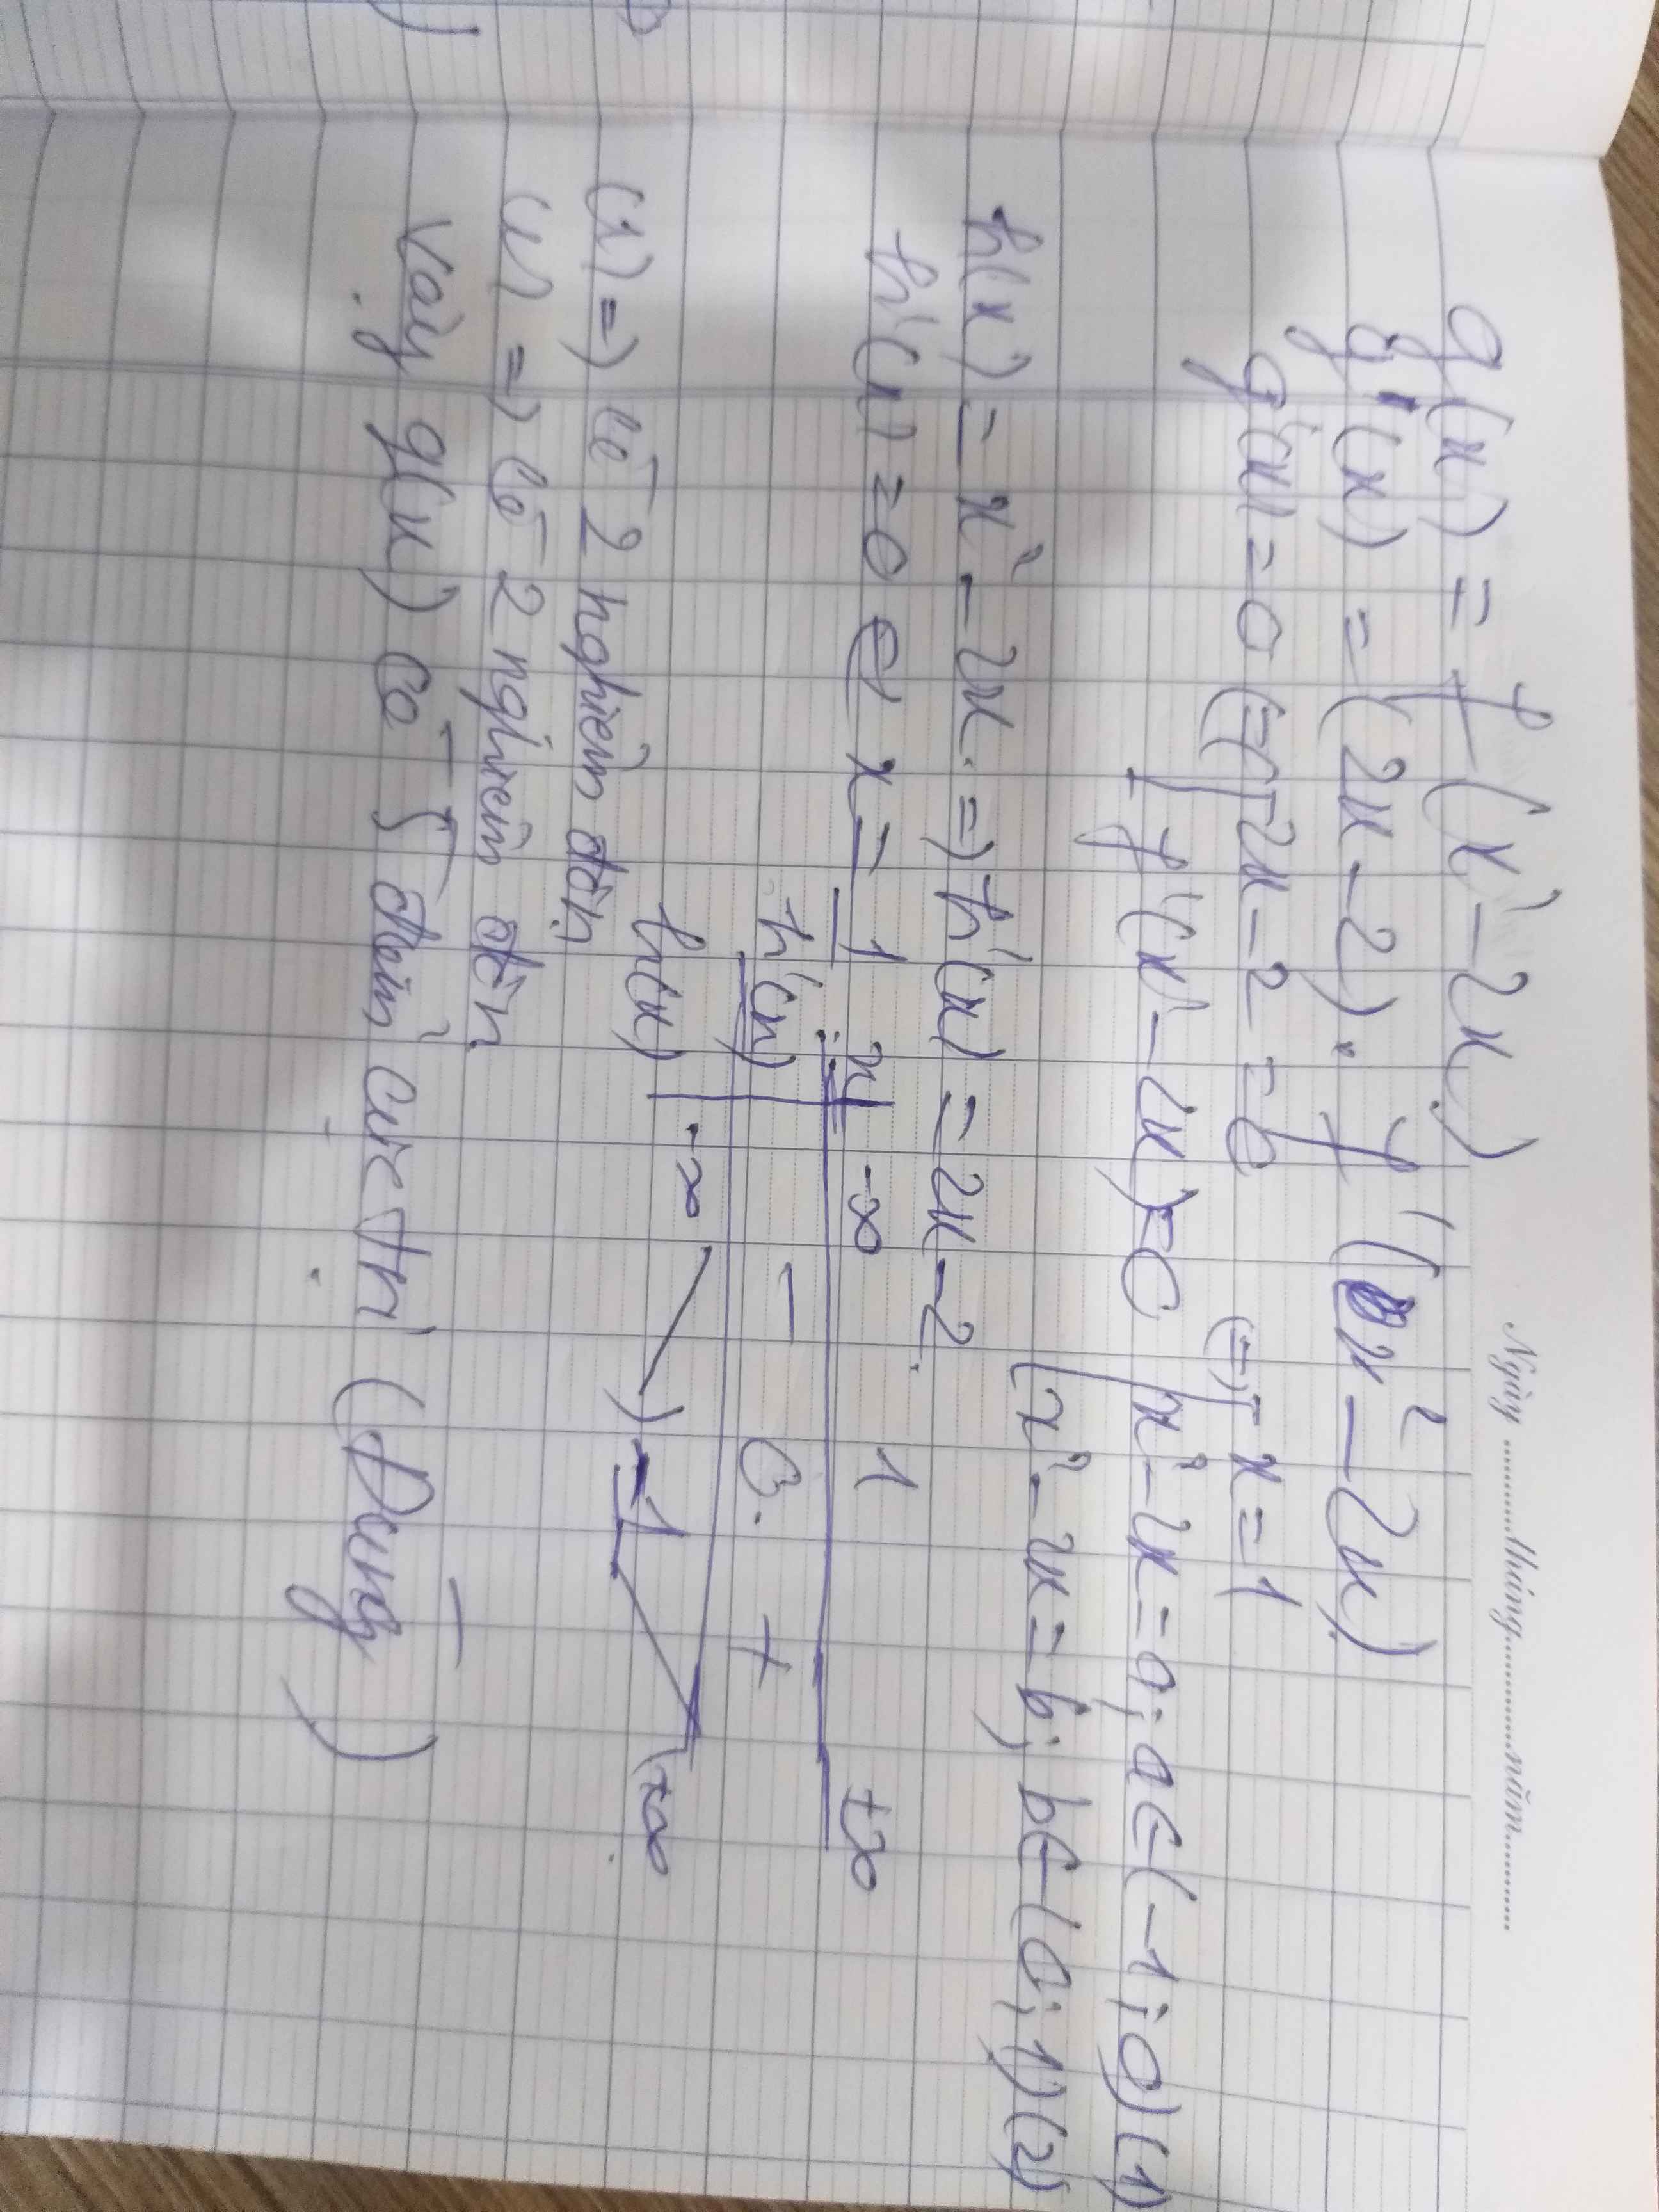 Ngày ............tháng............năm............
g(x) = f(x² - 2x)
g'(x) = (2x - 2). f'(x² - 2x)
g'(x) = 0 (=) [ 2x - 2 = 0 (=) [ x = 1
f'(x² - 2x) = 0 [ x² - 2x = a; a ∈ (-1; 0) (1)
[ x² - 2x = b; b ∈ (0; 1) (2)
h(x) = x² - 2x. => h'(x) = 2x - 2.
h'(x) = 0 (=) x = 1
x | -∞ 1 +∞
h'(x) | - 0 +
h(x) | -∞ -1 +∞
(1) => có 2 nghiệm đơn
=> có 2 nghiệm đơn.
Vậy g(x) có 5 điểm cực trị (Đúng)